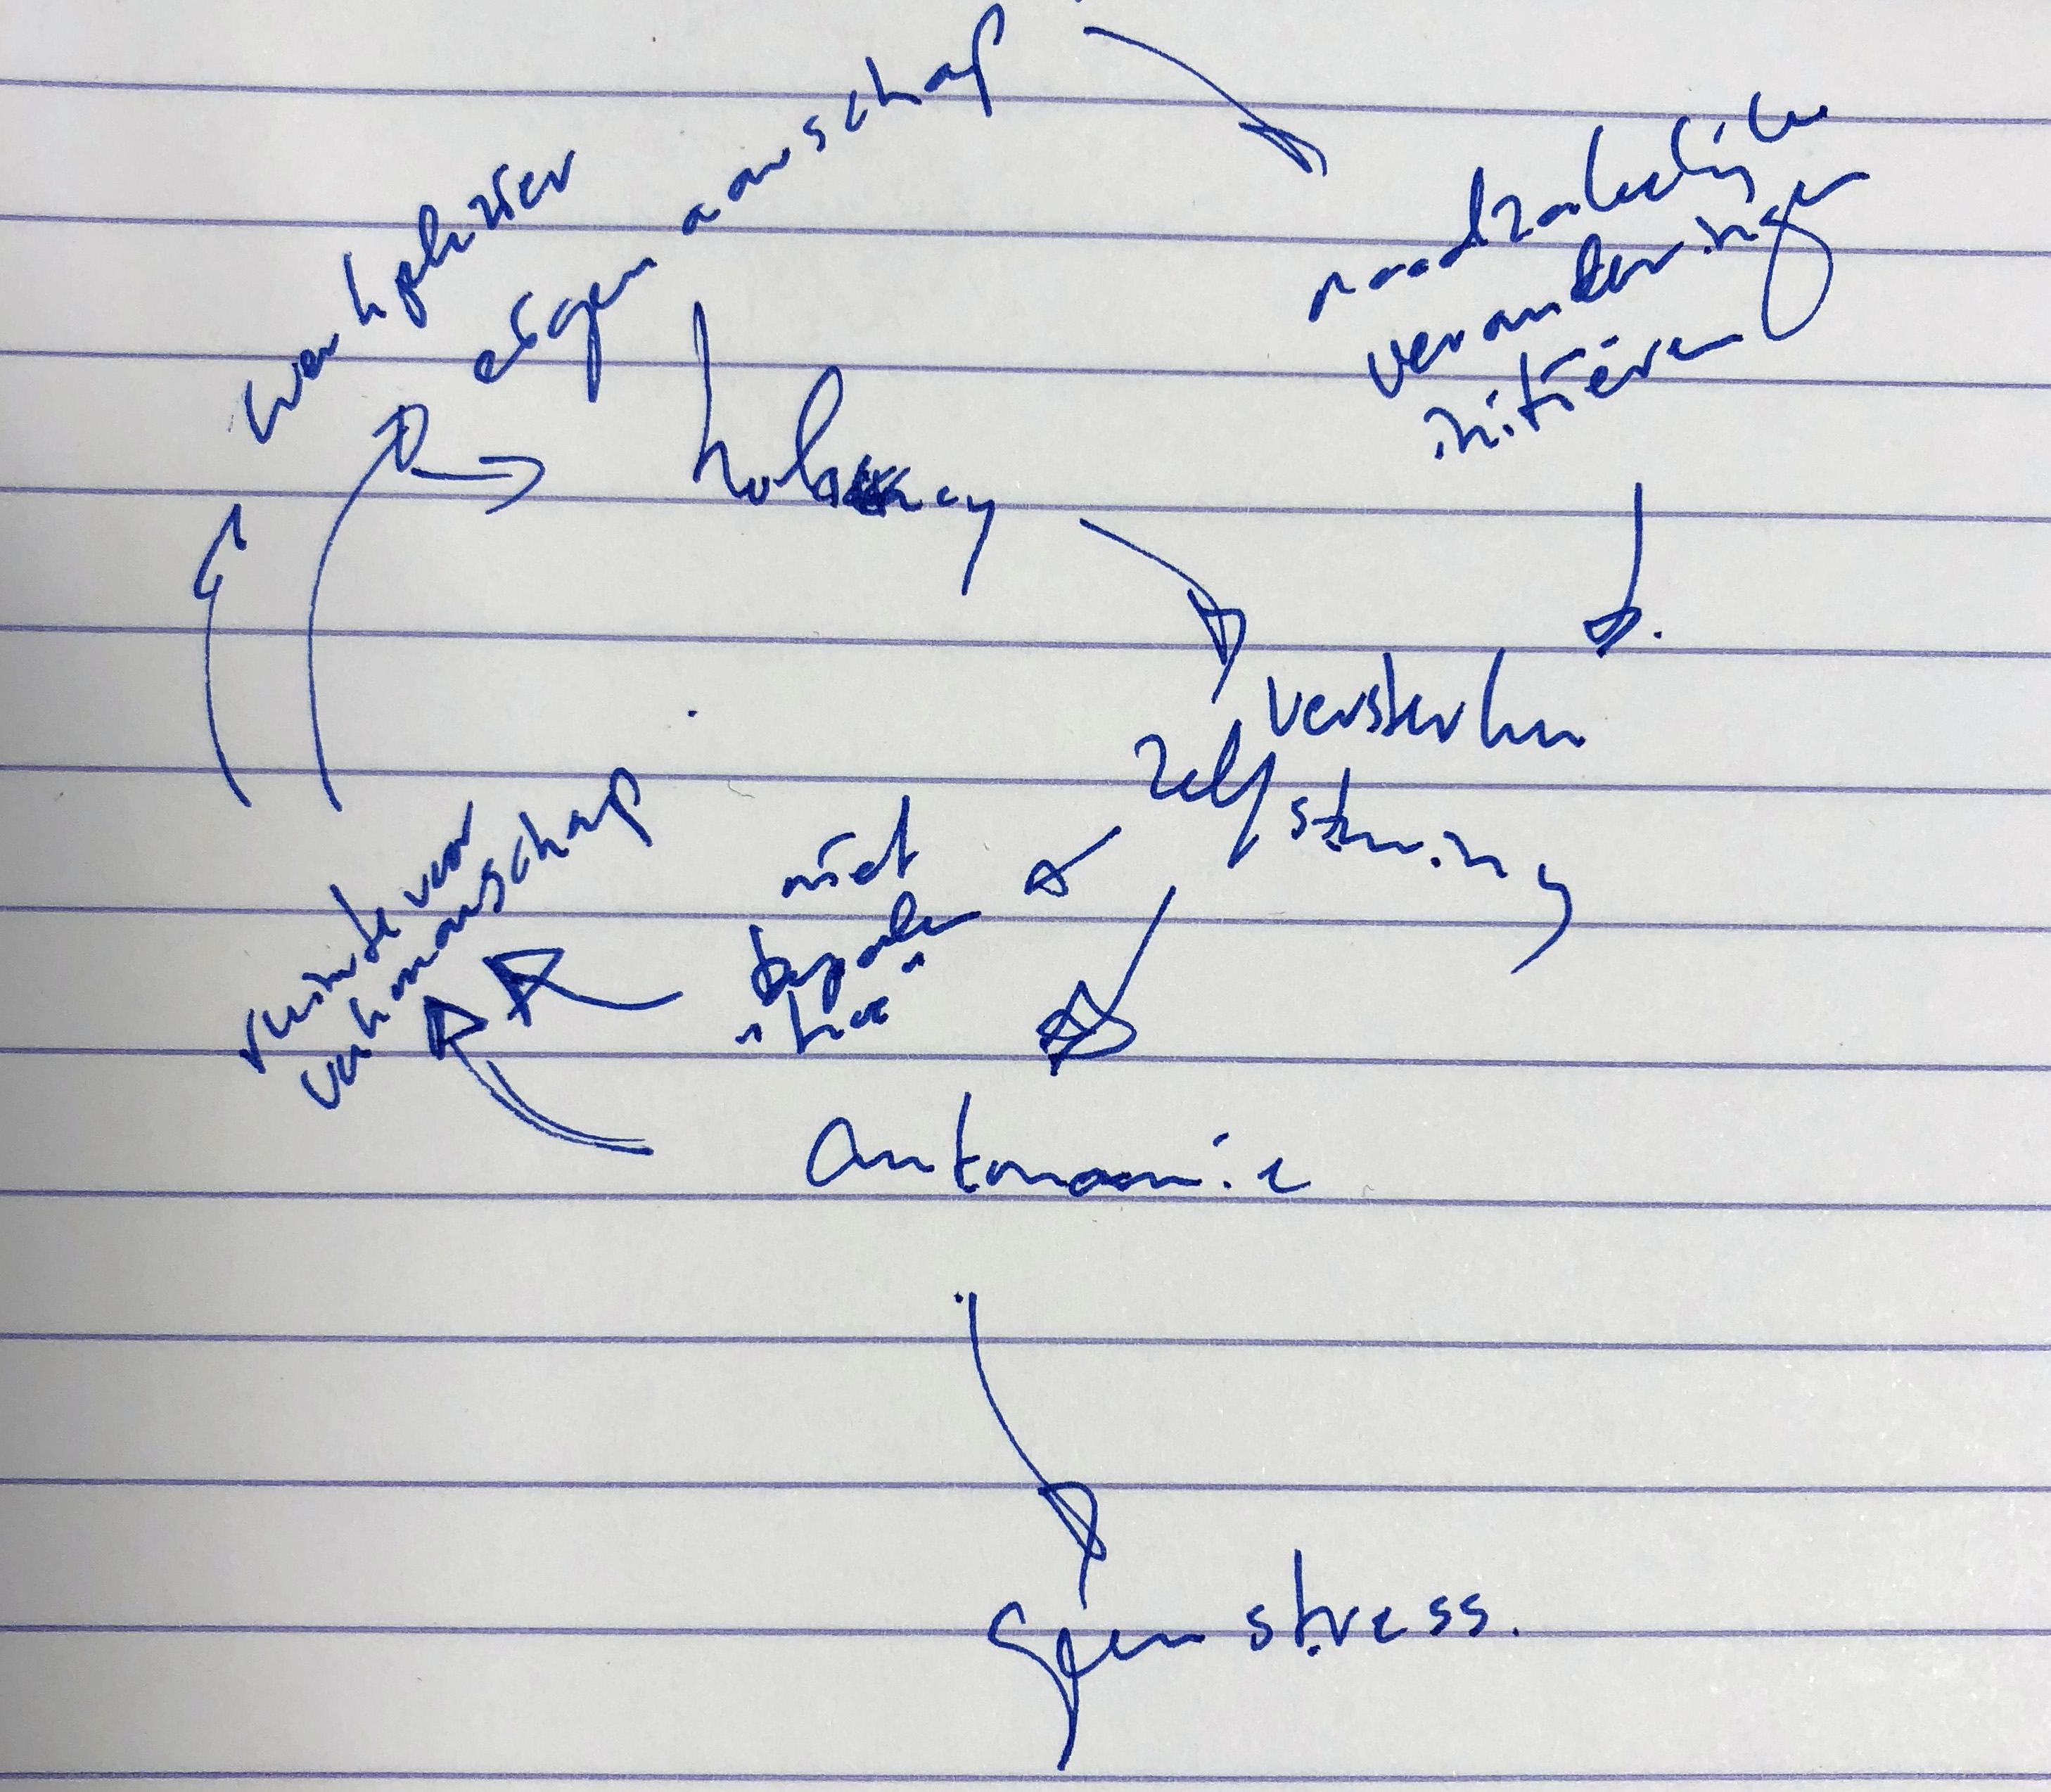 werkplezier
eigenaarschap
noodzakelijke
veranderingen
initiëren
versterken
zelfsturing
niet
bepalen
"hoe"
ruimte voor
vakmanschap
autonomie
geen stress.